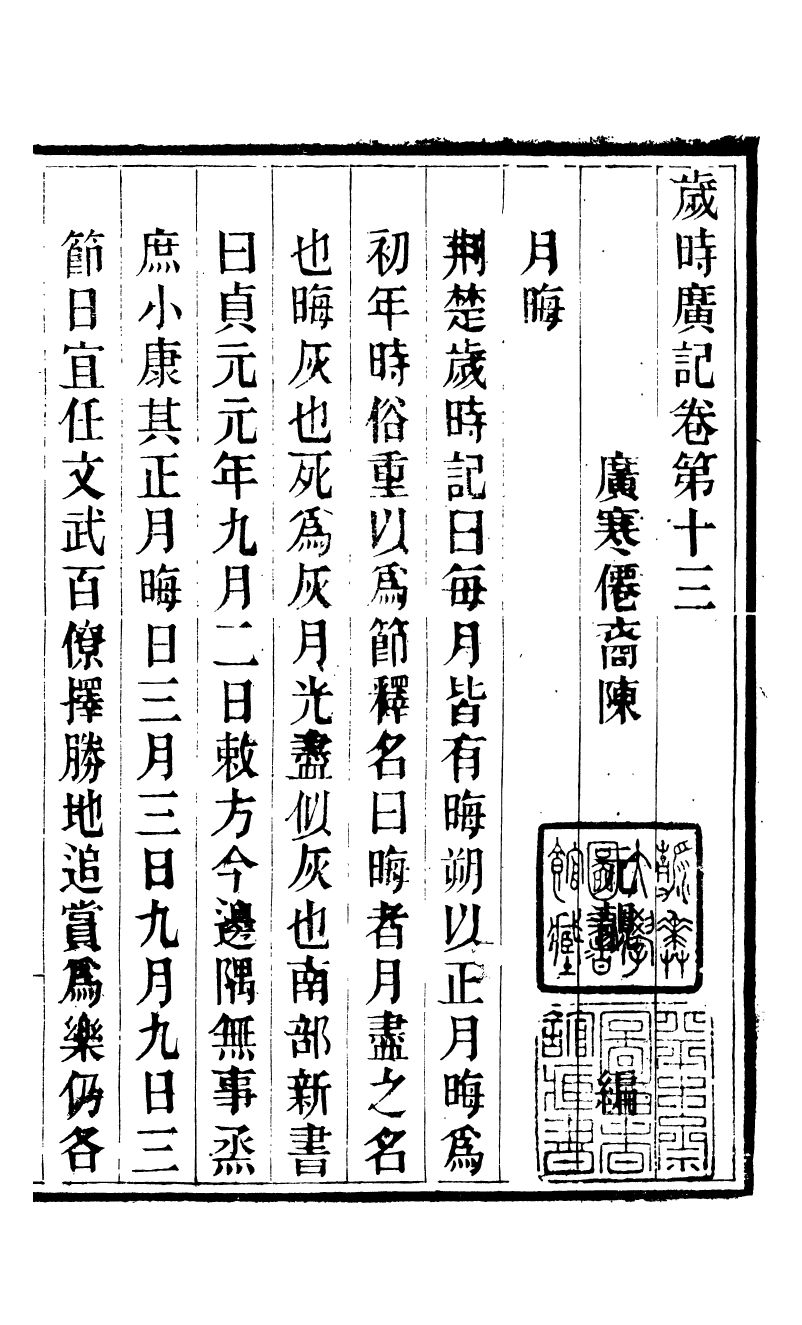 歲時廣記卷第十三
廣寒僊裔陳元靚編
月晦
荆楚歲時記曰每月皆有晦朔以正月晦爲
初年時俗重以爲節釋名曰晦者月盡之名
也晦灰也死爲灰月光盡似灰也南部新書
曰貞元元年九月二日敕方今邊隅無事烝
庶小康其正月晦日三月三日九月九日三
節日宜任文武百僚擇勝地追賞爲樂仍各
燕京大學圖書館藏